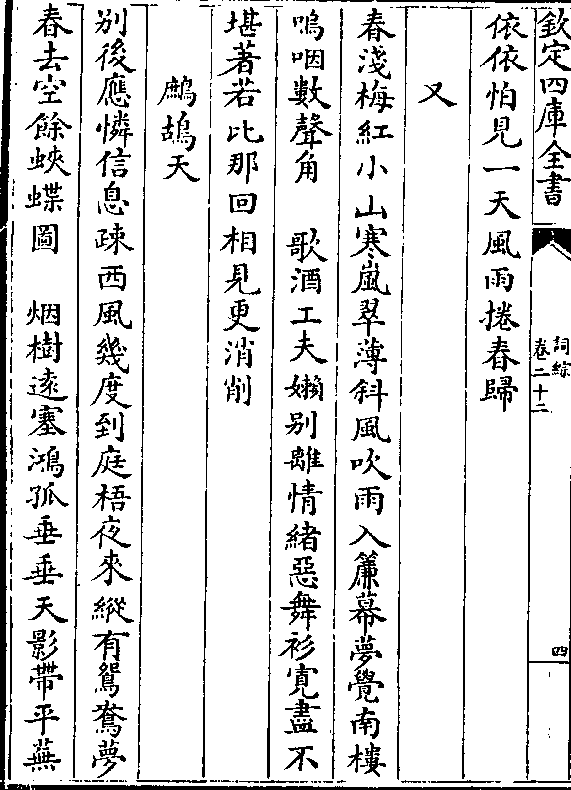 欽定四庫全書
詞綜
卷二十二
四
依依怕見一天風雨捲春歸
又
春淺梅紅小山寒嵐翠薄斜風吹雨入簾幕夢覺南樓
嗚咽數聲角　歌酒工夫嬾别離情緒惡舞衫寛盡不
堪著若比那回相見更消削
鷓鴣天
别後應憐信息疎西風幾度到庭梧夜來縱有鴛鴦夢
春去空餘蛺蝶圖　烟樹遠塞鴻孤垂垂天影帶平蕪